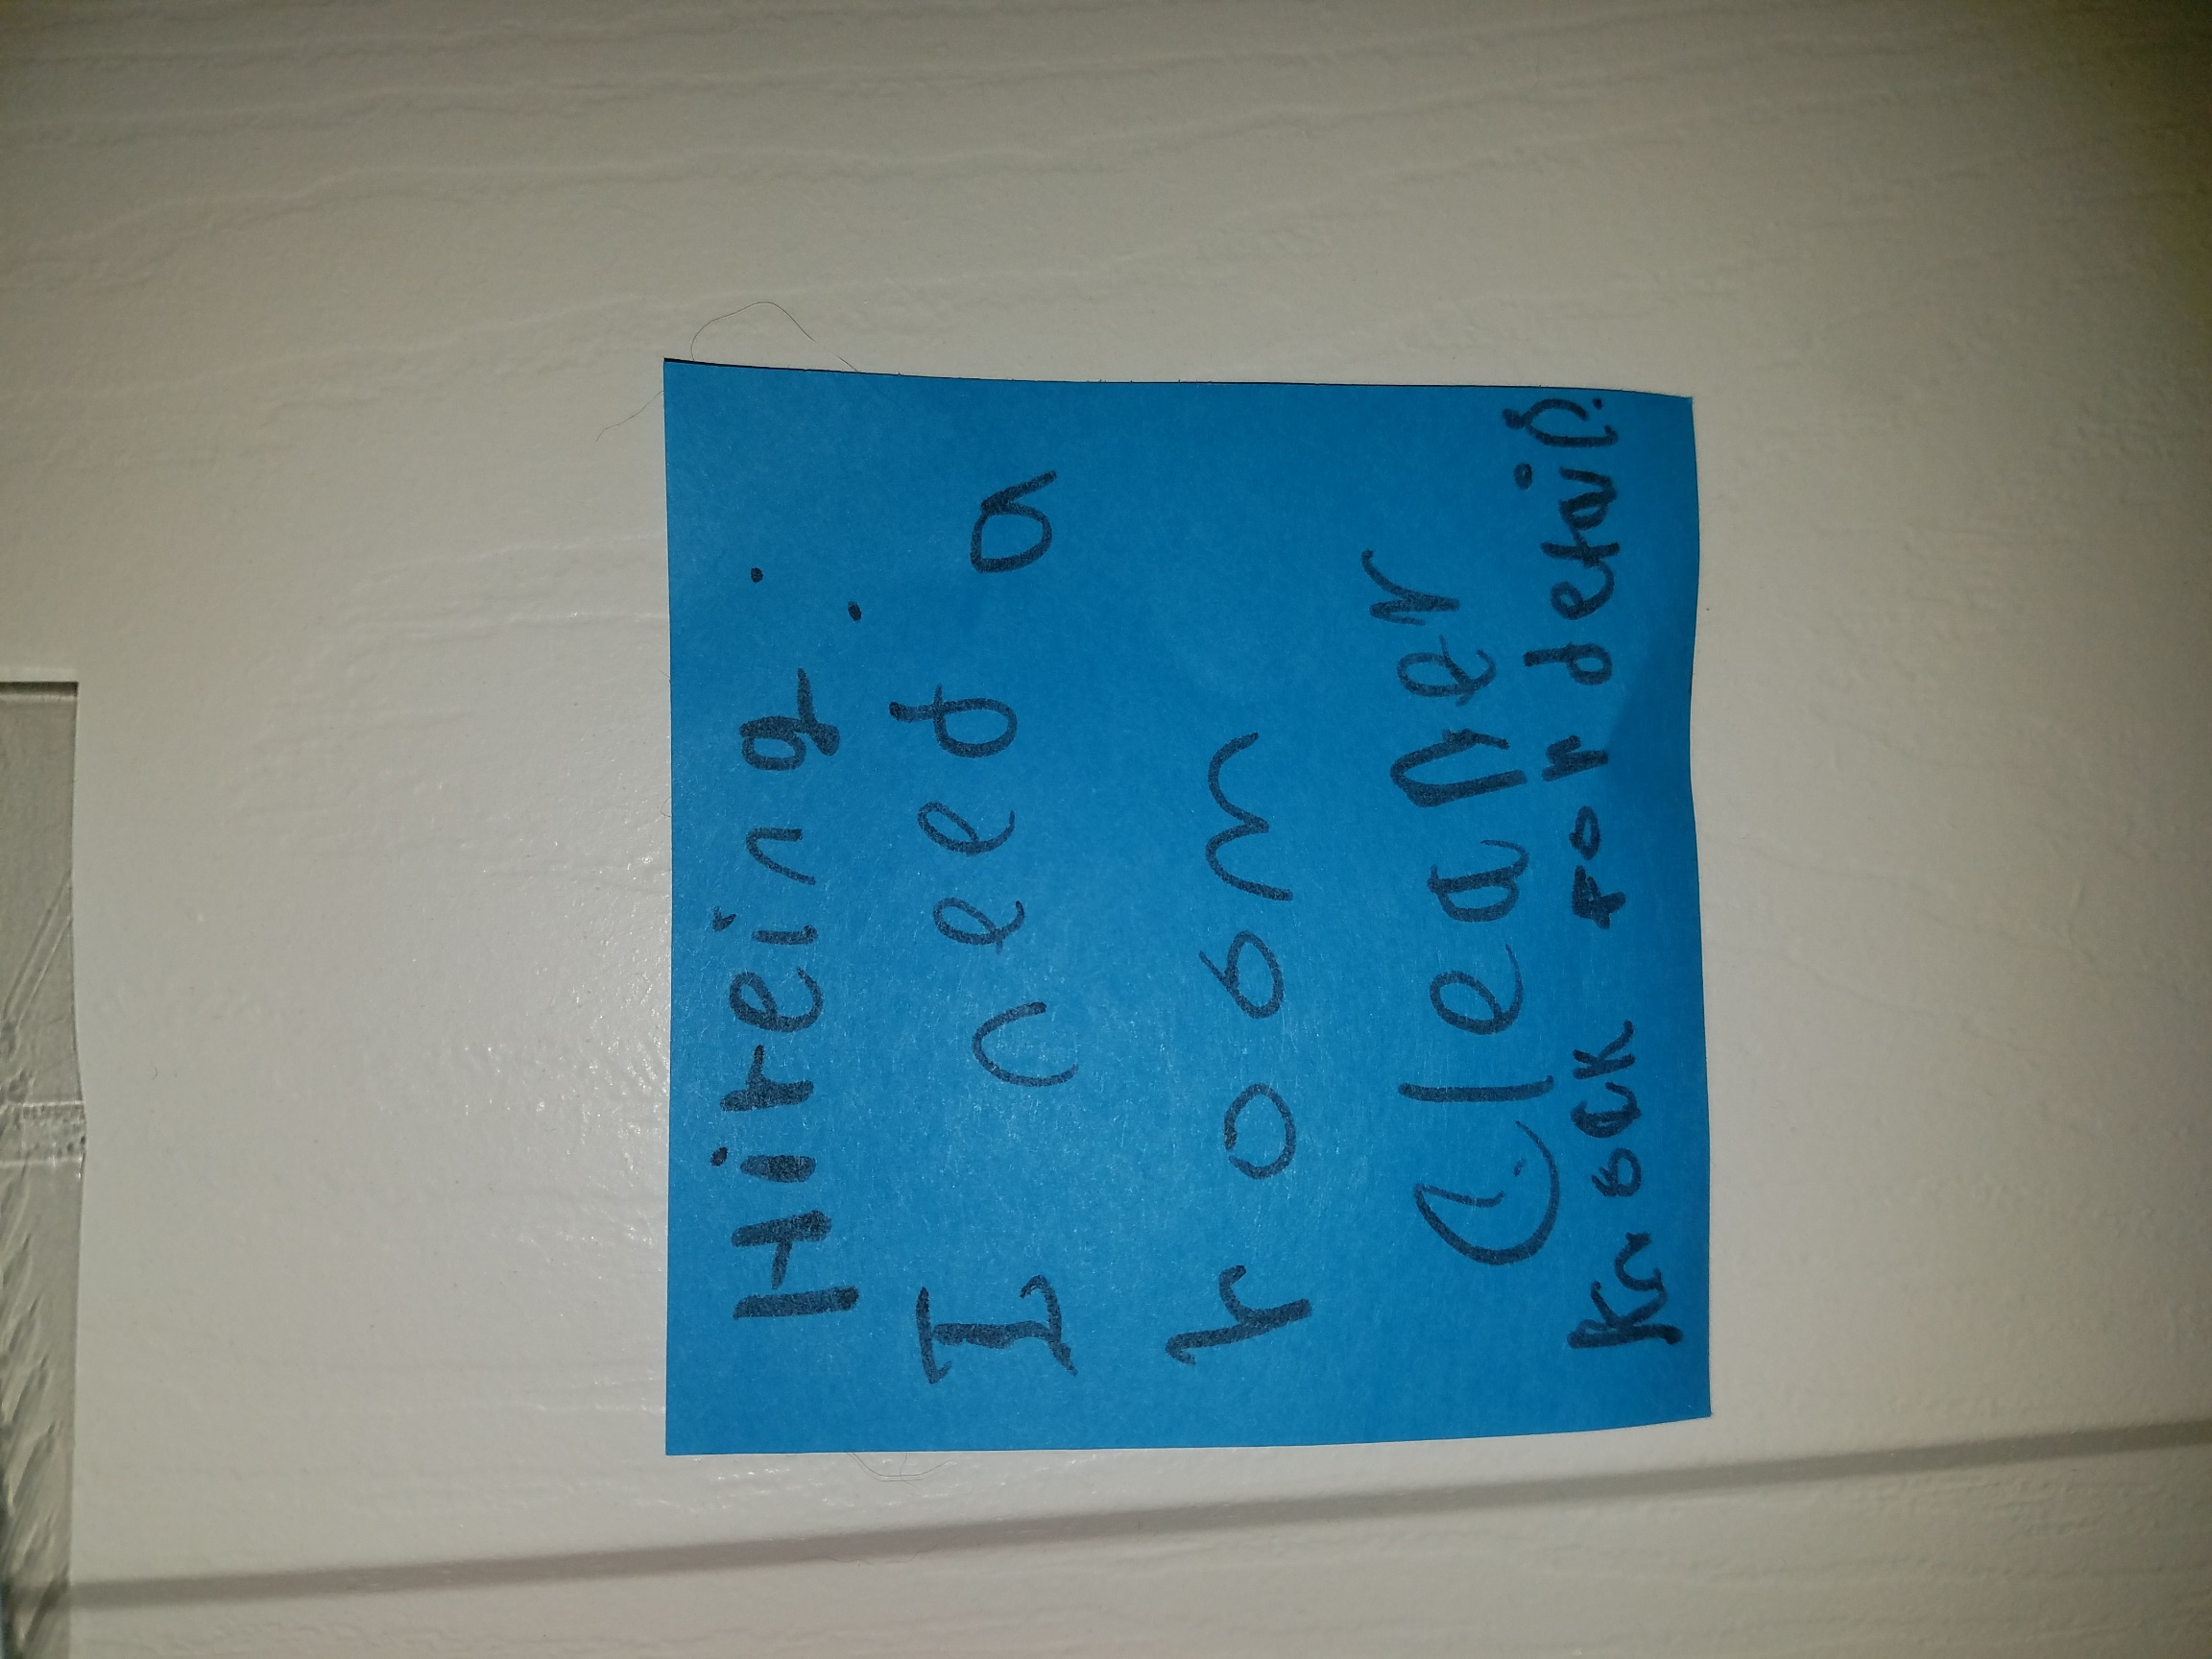 Hireing:
I need a
room
Cleaner
Knock for detail.